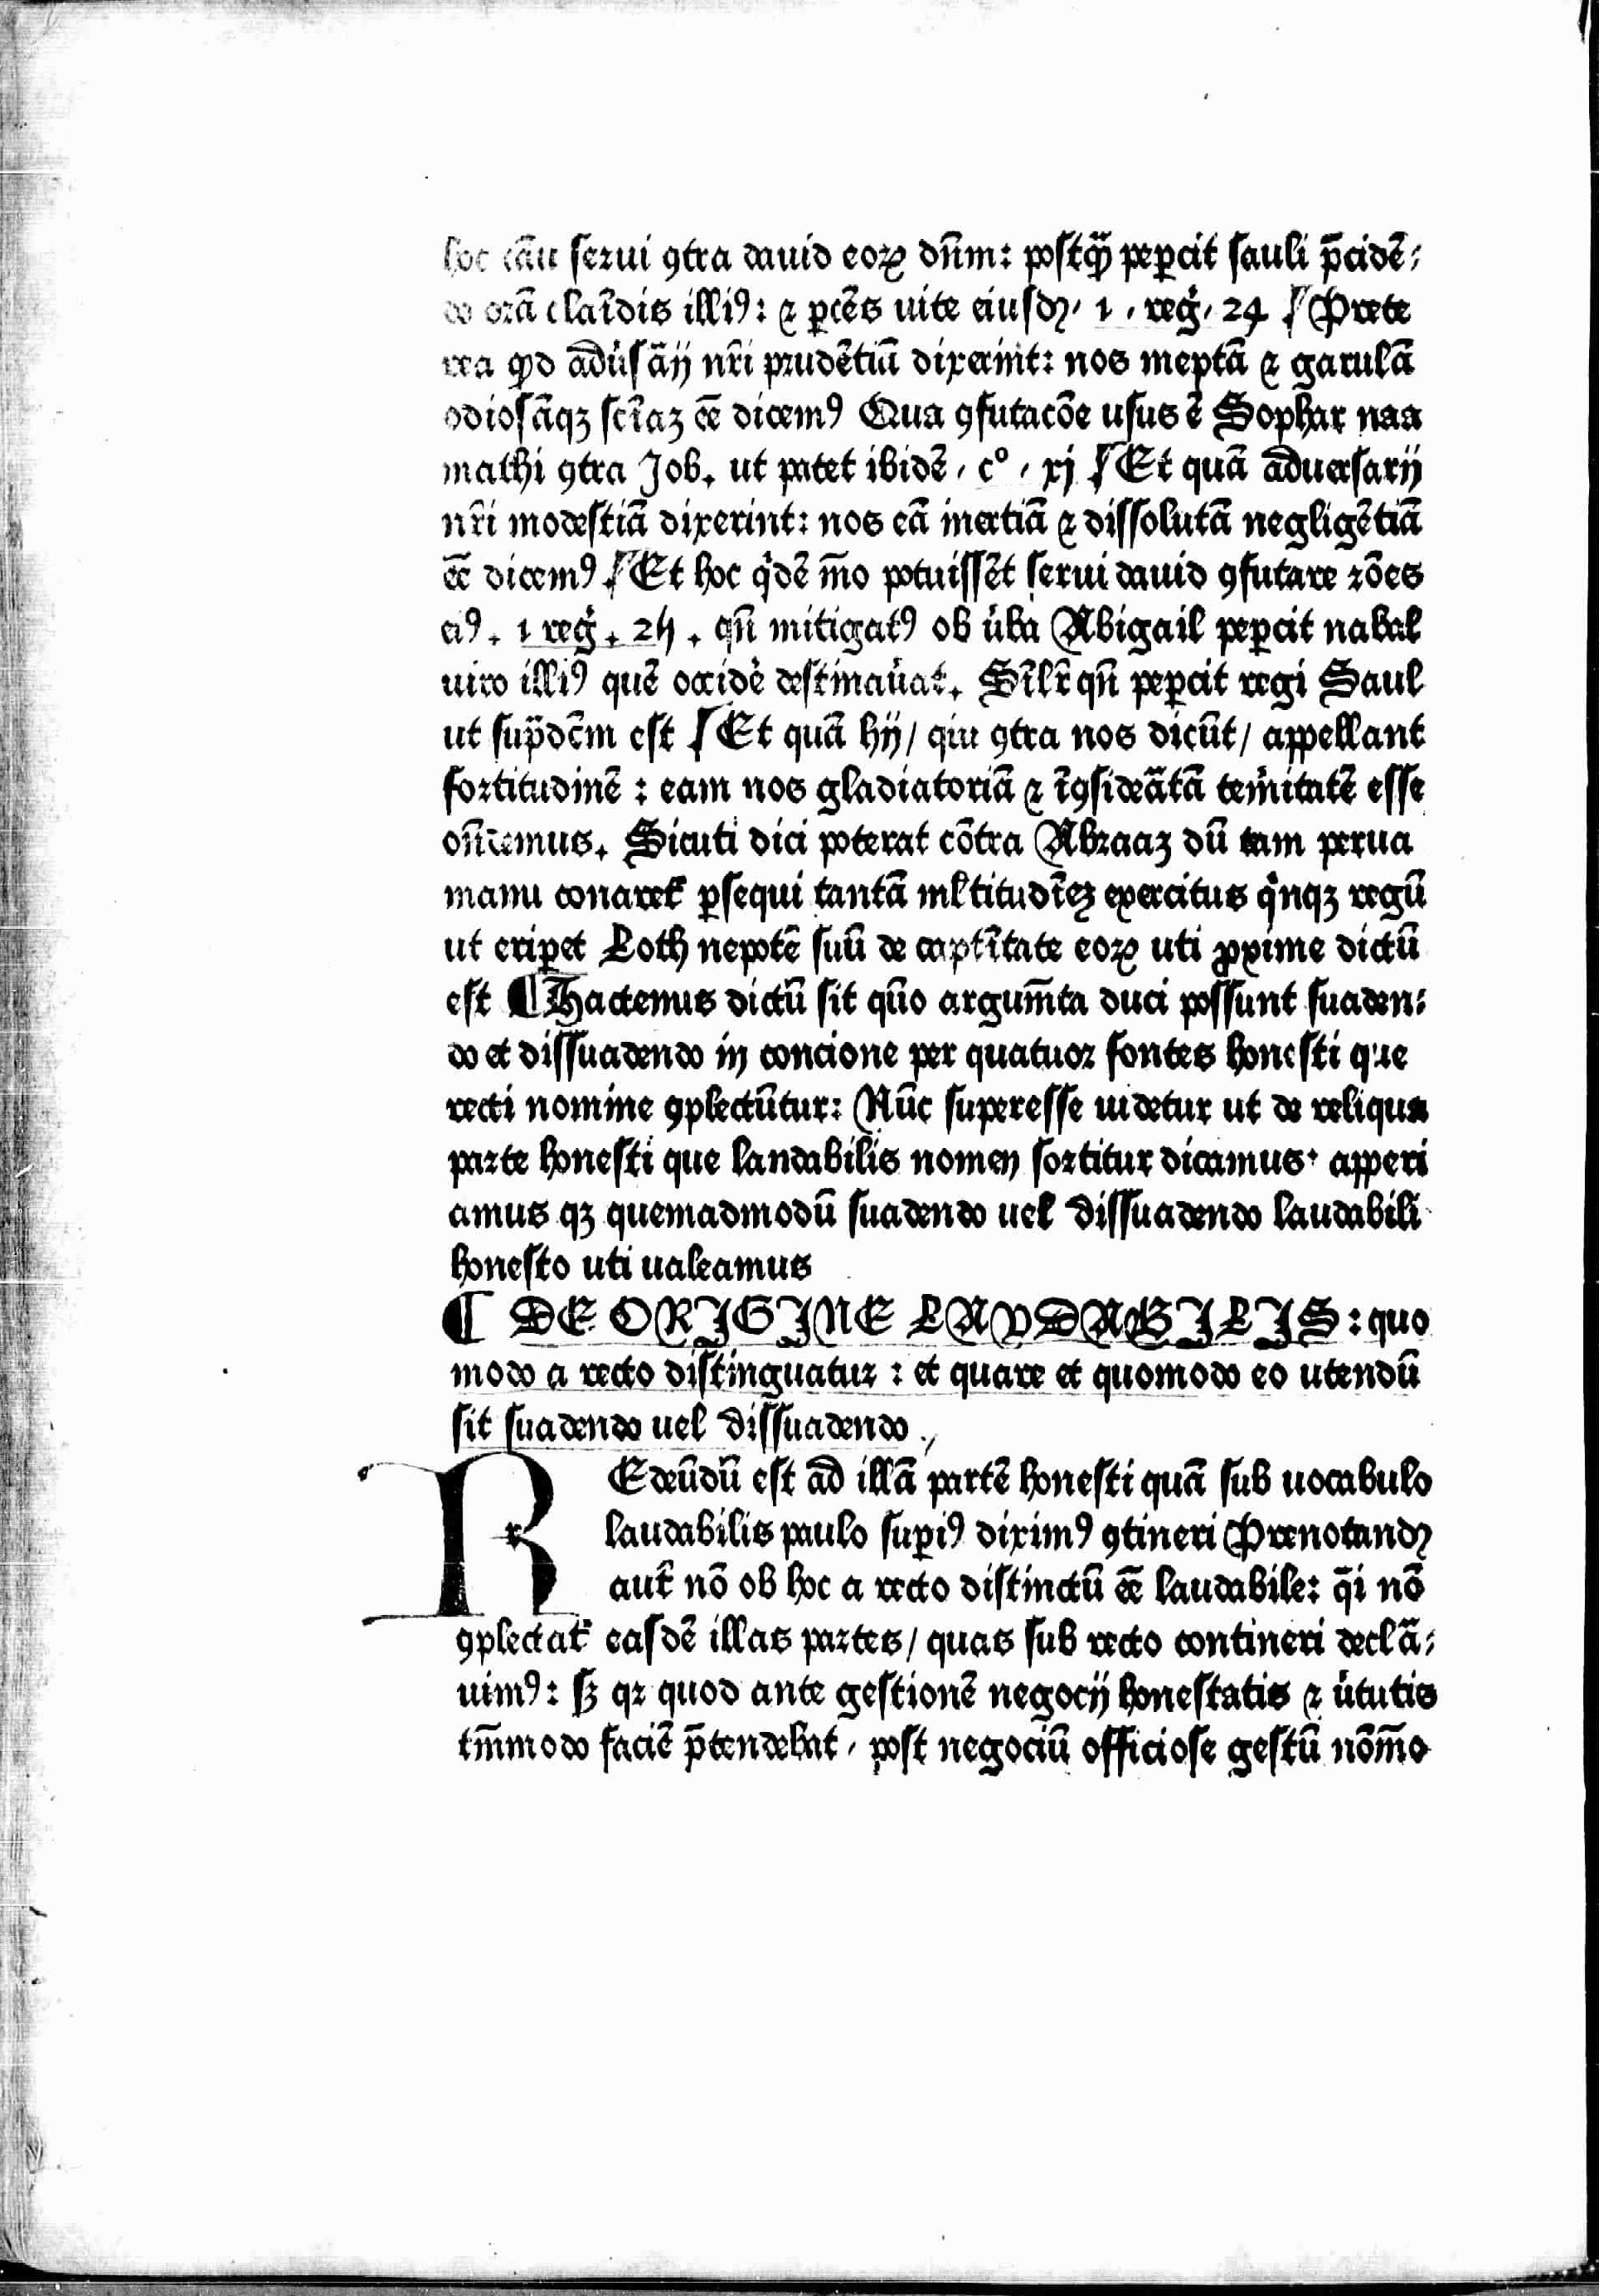 hoc cāu serui ꝯtra dauid eoꝝ dn̄m: postꝙ̄ peꝑcit sauli p̄cidē⸗
do orā clam̄dis illiꝰ: ⁊ ꝑcēs uite eiusdꝫ, 1, reg̉, 24 / Prete
rea ꝙd adu̓sāij nr̄i prudētiū dixerint: nos meptā ⁊ garulā
odiosāqꝫ scīaꝫ eē dicemꝰ Qua ꝯfutacōe usus ē Sophar naa
mathi ꝯtra Job. ut patet ibidē, c°, xj / Et quā aduersarij
nr̄i modestiā dixerint: nos eā inertiā ⁊ dissolutā negligētiā
eē dicemꝰ / Et hoc q̇dē m̄o potuissēt serui dauid ꝯfutare rōes
eiꝰ. 1 reg̉. 25. qn̄ mitigatꝰ ob u̓ba Abigail peꝑcit nabal
uiro illiꝰ quē occide̓ destinau̓at. Sīlr̄ qn̄ peꝑcit regi Saul
ut sup̄dc̄m est / Et quā hij / qui ꝯtra nos dicūt / appellant
fortitudinē: eam nos gladiatoriā ⁊ īꝯsideātā tem̓itatē esse
on̄demus. Sicuti dici poterat cōtra Abraaꝫ dū tam perua
manu conaretᷣ ꝑsequi tantā ml̄titudīeꝫ exercitus qͥnqꝫ regū
ut eriꝑet Loth nepotē suū de captīitate eoꝝ uti ꝓxime dictū
est ¶ Hactenus dictū sit qūo argum̄ta duci possunt suaden⸗
do et dissuadendo in concione per quatuor fontes honesti que
recti nomine ꝯplectūtur: Nūc superesse uidetur ut de reliqua
parte honesti que landabilis nomen sortitur dicamus, apperi
amus qꝫ quemadmodū suadendo uel dissuadendo laudabili
honesto uti ualeamus
¶ DE ORIGINE LAVDABILIS: quo
modo a recto distinguatur: et quare et quomodo eo utendū
sit suadendo uel dissuadendo.,
REdeūdū est ad illā partē honesti quā sub uocabulo
laudabilis paulo suꝑiꝰ diximꝰ ꝯtineri Prenotandꝫ
autᷣ nō ob hoc a recto distinctū eē laudabile: q̄i nō
ꝯplectatᷣ easdē illas partes / quas sub recto contineri declā⸗
uimꝰ: sꝫ qꝛ quod ante gestionē negocij honestatis ⁊ u̓tutis
tm̄modo faciē p̄tendebat, post negociū officiose gestū nōm̄o